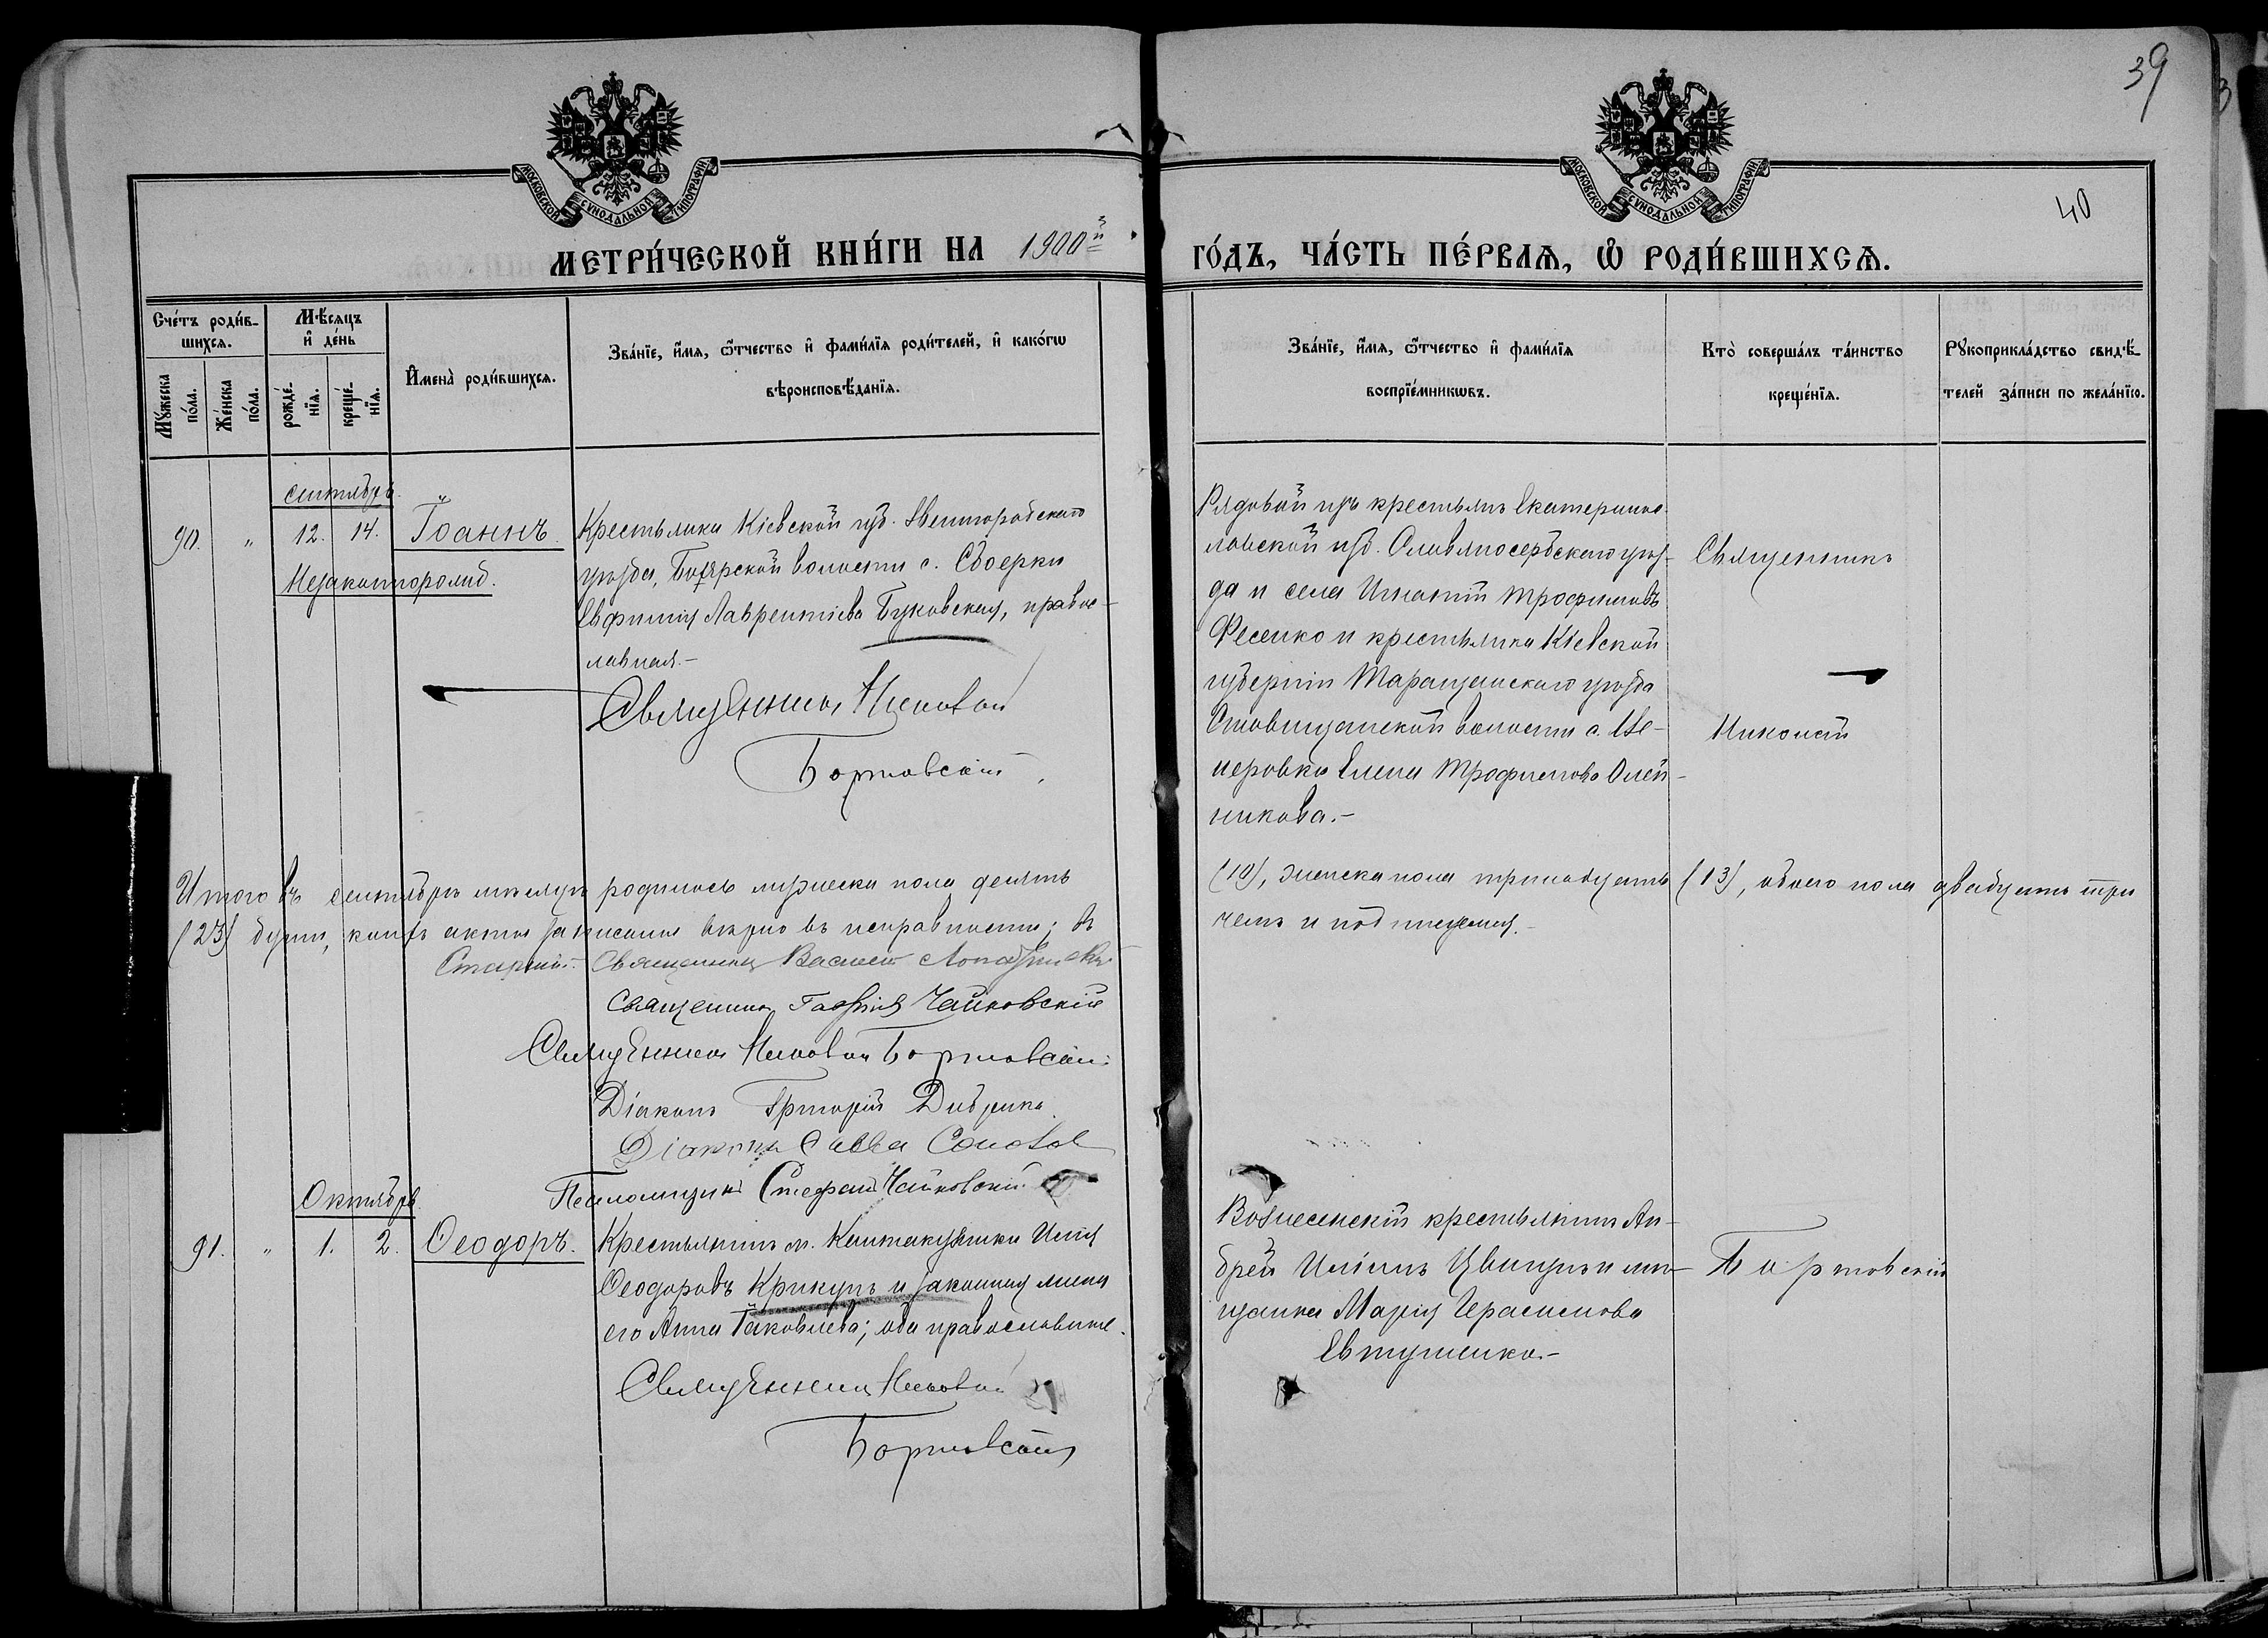 39
40
МОСКОВСКОЙ СѴНОДАЛЬНОЙ ТИПОГРАФІИ
МОСКОВСКОЙ СѴНОДАЛЬНОЙ ТИПОГРАФІИ
МЕТРИ́ЧЕСКОЙ КНИ́ГИ НА 1900й
ГО́ДЪ, ЧА́СТЬ ПЕ́РВАѦ, Ѡ҆ РОДИ́ВШИХСѦ.
Сче́тъ роди́в-
шихсѧ.
Мѣ́сяцъ
и҆ де́нь
Мꙋ́жеска по́ла.
Же́нска по́ла.
рожде́-
нїѧ.
креще́-
нїѧ.
И҆мена̀ роди́вшихсѧ.
Зва́нїе, и҆́мѧ, ѻ҆́тчество и҆ фами́лїѧ роди́телей, и҆ како́гѡ
вѣроисповѣ́данїѧ.
Зва́нїе, и҆́мѧ, ѻ҆́тчество и҆ фами́лїѧ
воспрїе́мникѡвъ.
Кто̀ соверша́лъ та́инство
креще́нїѧ.
Рꙋкоприкла́дство свидѣ́-
телей за́писи по жела́нїю.
сентябрь.
90. " 12. 14. Іоаннъ.
Незаконнорожд.
Крестьянка Кіевской губ. Звенигородскаго
уѣзда, Боярской волости с.
Евфимія Лаврентіева Буковская, правос-
лавная.-
Священникъ Николай
Бортовскій
Рядовой изъ крестьянъ Екатеринос-
лавской губ. Славяносербскаго уѣз-
да и села Игнатій Трофимовъ
Фесенко и крестьянка Кіевской
губерніи Таращанскаго уѣзда
Ставищанской волости с.
Елена Трофимова Олей-
никова.-
Священникъ
Николай
Итого въ сентябрѣ мѣсяцѣ родилось мужеска пола десять (10), женска пола тринадцать (13), обоего пола двадцать три
(23) души, коихъ акты записаны вѣрно въ исправности; въ чемъ и подписуемся.-
Священникъ Василій
Священникъ Гавріилъ Чайковскій
Священникъ Николай Бортовскій
Діаконъ Григорій
Діаконъ Савва
Псаломщикъ Стефанъ Чайковскій
Октябрь.
91. " 1. 2. Ѳеодоръ.
Крестьянинъ м. Илія
Ѳеодоровъ Крикунъ и законная жена
его Анна Іаковлева; оба православные.
Священникъ Николай
Бортовскій
Вознесенскій крестьянинъ Ан-
дрей Иліинъ и мѣ-
щанка Марія Герасимова
Евтушенко.-
Бортовскій